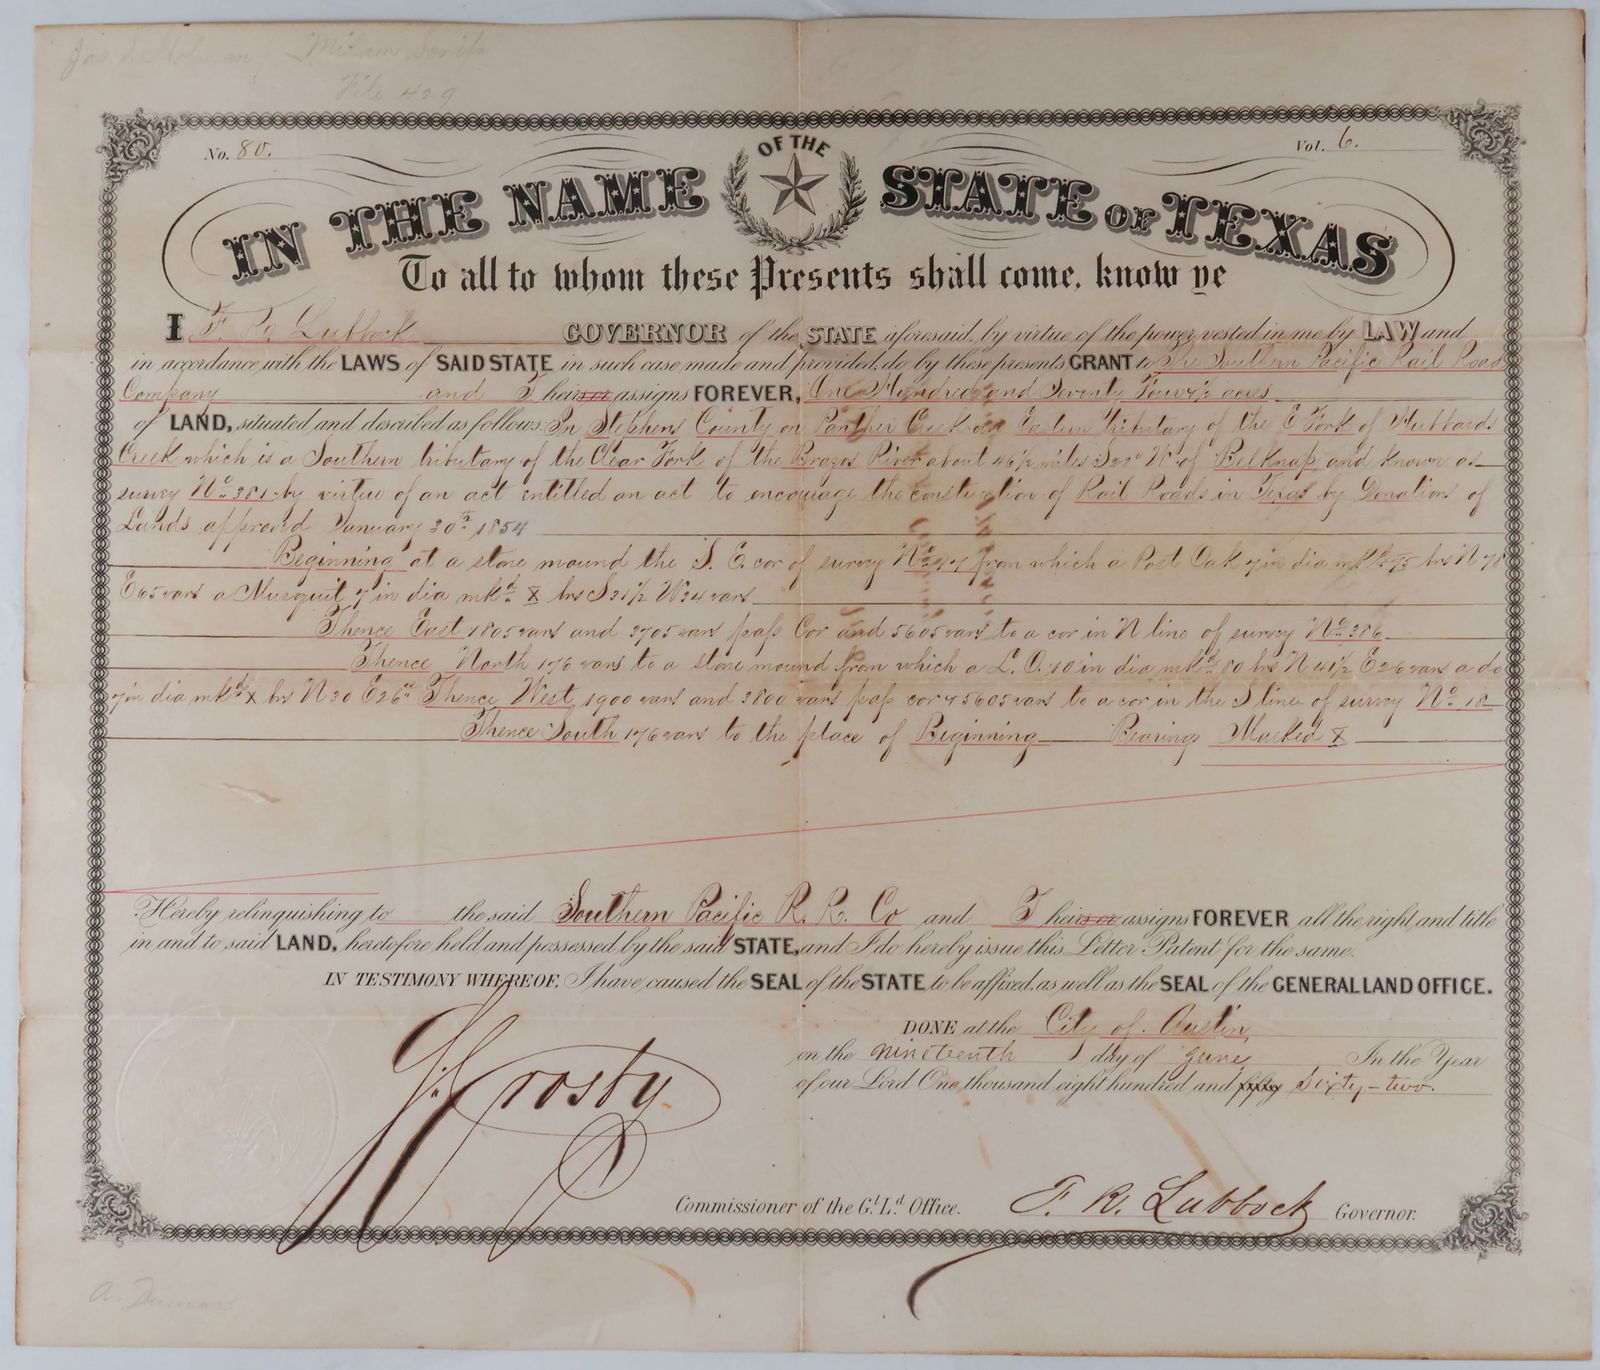 File 429
No. 80.
Vol. 6.
IN THE NAME OF THE STATE OF TEXAS
To all to whom these Presents shall come, know ye
I F. R. Lubbock GOVERNOR of the STATE aforesaid, by virtue of the power vested in me by LAW and
in accordance with the LAWS of SAID STATE in such case made and provided, do by these presents GRANT to The Southern Pacific Rail Road
Company and T heirs or assigns FOREVER, One Hundred and Seventy Four ½ acres
of LAND, situated and described as follows: In Stephens County on Panther Creek an Eastern Tributary of the E Fork of Hubbards
Creek which is a Southern tributary of the Clear Fork of the Brazos River about 46½ miles S 20° W of Belknap and known as
survey No 381 by virtue of an act entitled an act to encourage the construction of Rail Roads in Texas by Donations of
Lands approved January 30th 1854
Beginning at a stone mound the S. E. cor of survey No from which a Post Oak 7 in dia mkd 75 brs N 78
E 65 vars a Musquit 7 in dia mkd X brs S 31½ W 34 vars
Thence East 1805 vars and 3705 vars pass Cor and 5605 vars to a cor in N line of survey No 386
Thence North 176 vars to a stone mound from which a L. O. 10 in dia mkd 80 brs N 41½ E 26 vars a do
7 in dia mkd X brs N 30 E 26 Thence West 1900 vars and 3800 vars pass cor & 5605 vars to a cor in the S line of survey No 18
Thence South 176 vars to the place of Beginning Bearings Marked X
Hereby relinquishing to the said Southern Pacific R. R. Co and T heirs or assigns FOREVER all the right and title
in and to said LAND, heretofore held and possessed by the said STATE, and I do hereby issue this Letter Patent for the same.
IN TESTIMONY WHEREOF, I have caused the SEAL of the STATE to be affixed, as well as the SEAL of the GENERAL LAND OFFICE.
DONE at the City of Austin,
on the nineteenth day of June In the Year
of our Lord One thousand eight hundred and fifty sixty-two.
Crosby
Commissioner of the G.L. Office.
F. R. Lubbock Governor.